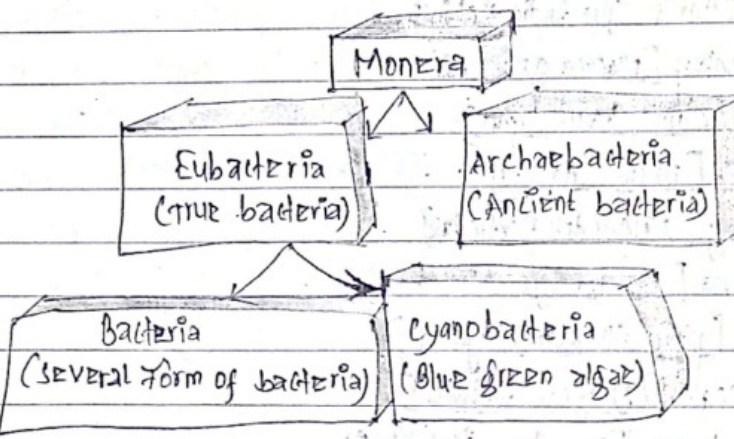 Monera
Eubacteria
(True bacteria)
Archaebacteria
(Ancient bacteria)
Bacteria
(Several form of bacteria)
Cyanobacteria
(Blue green algae)